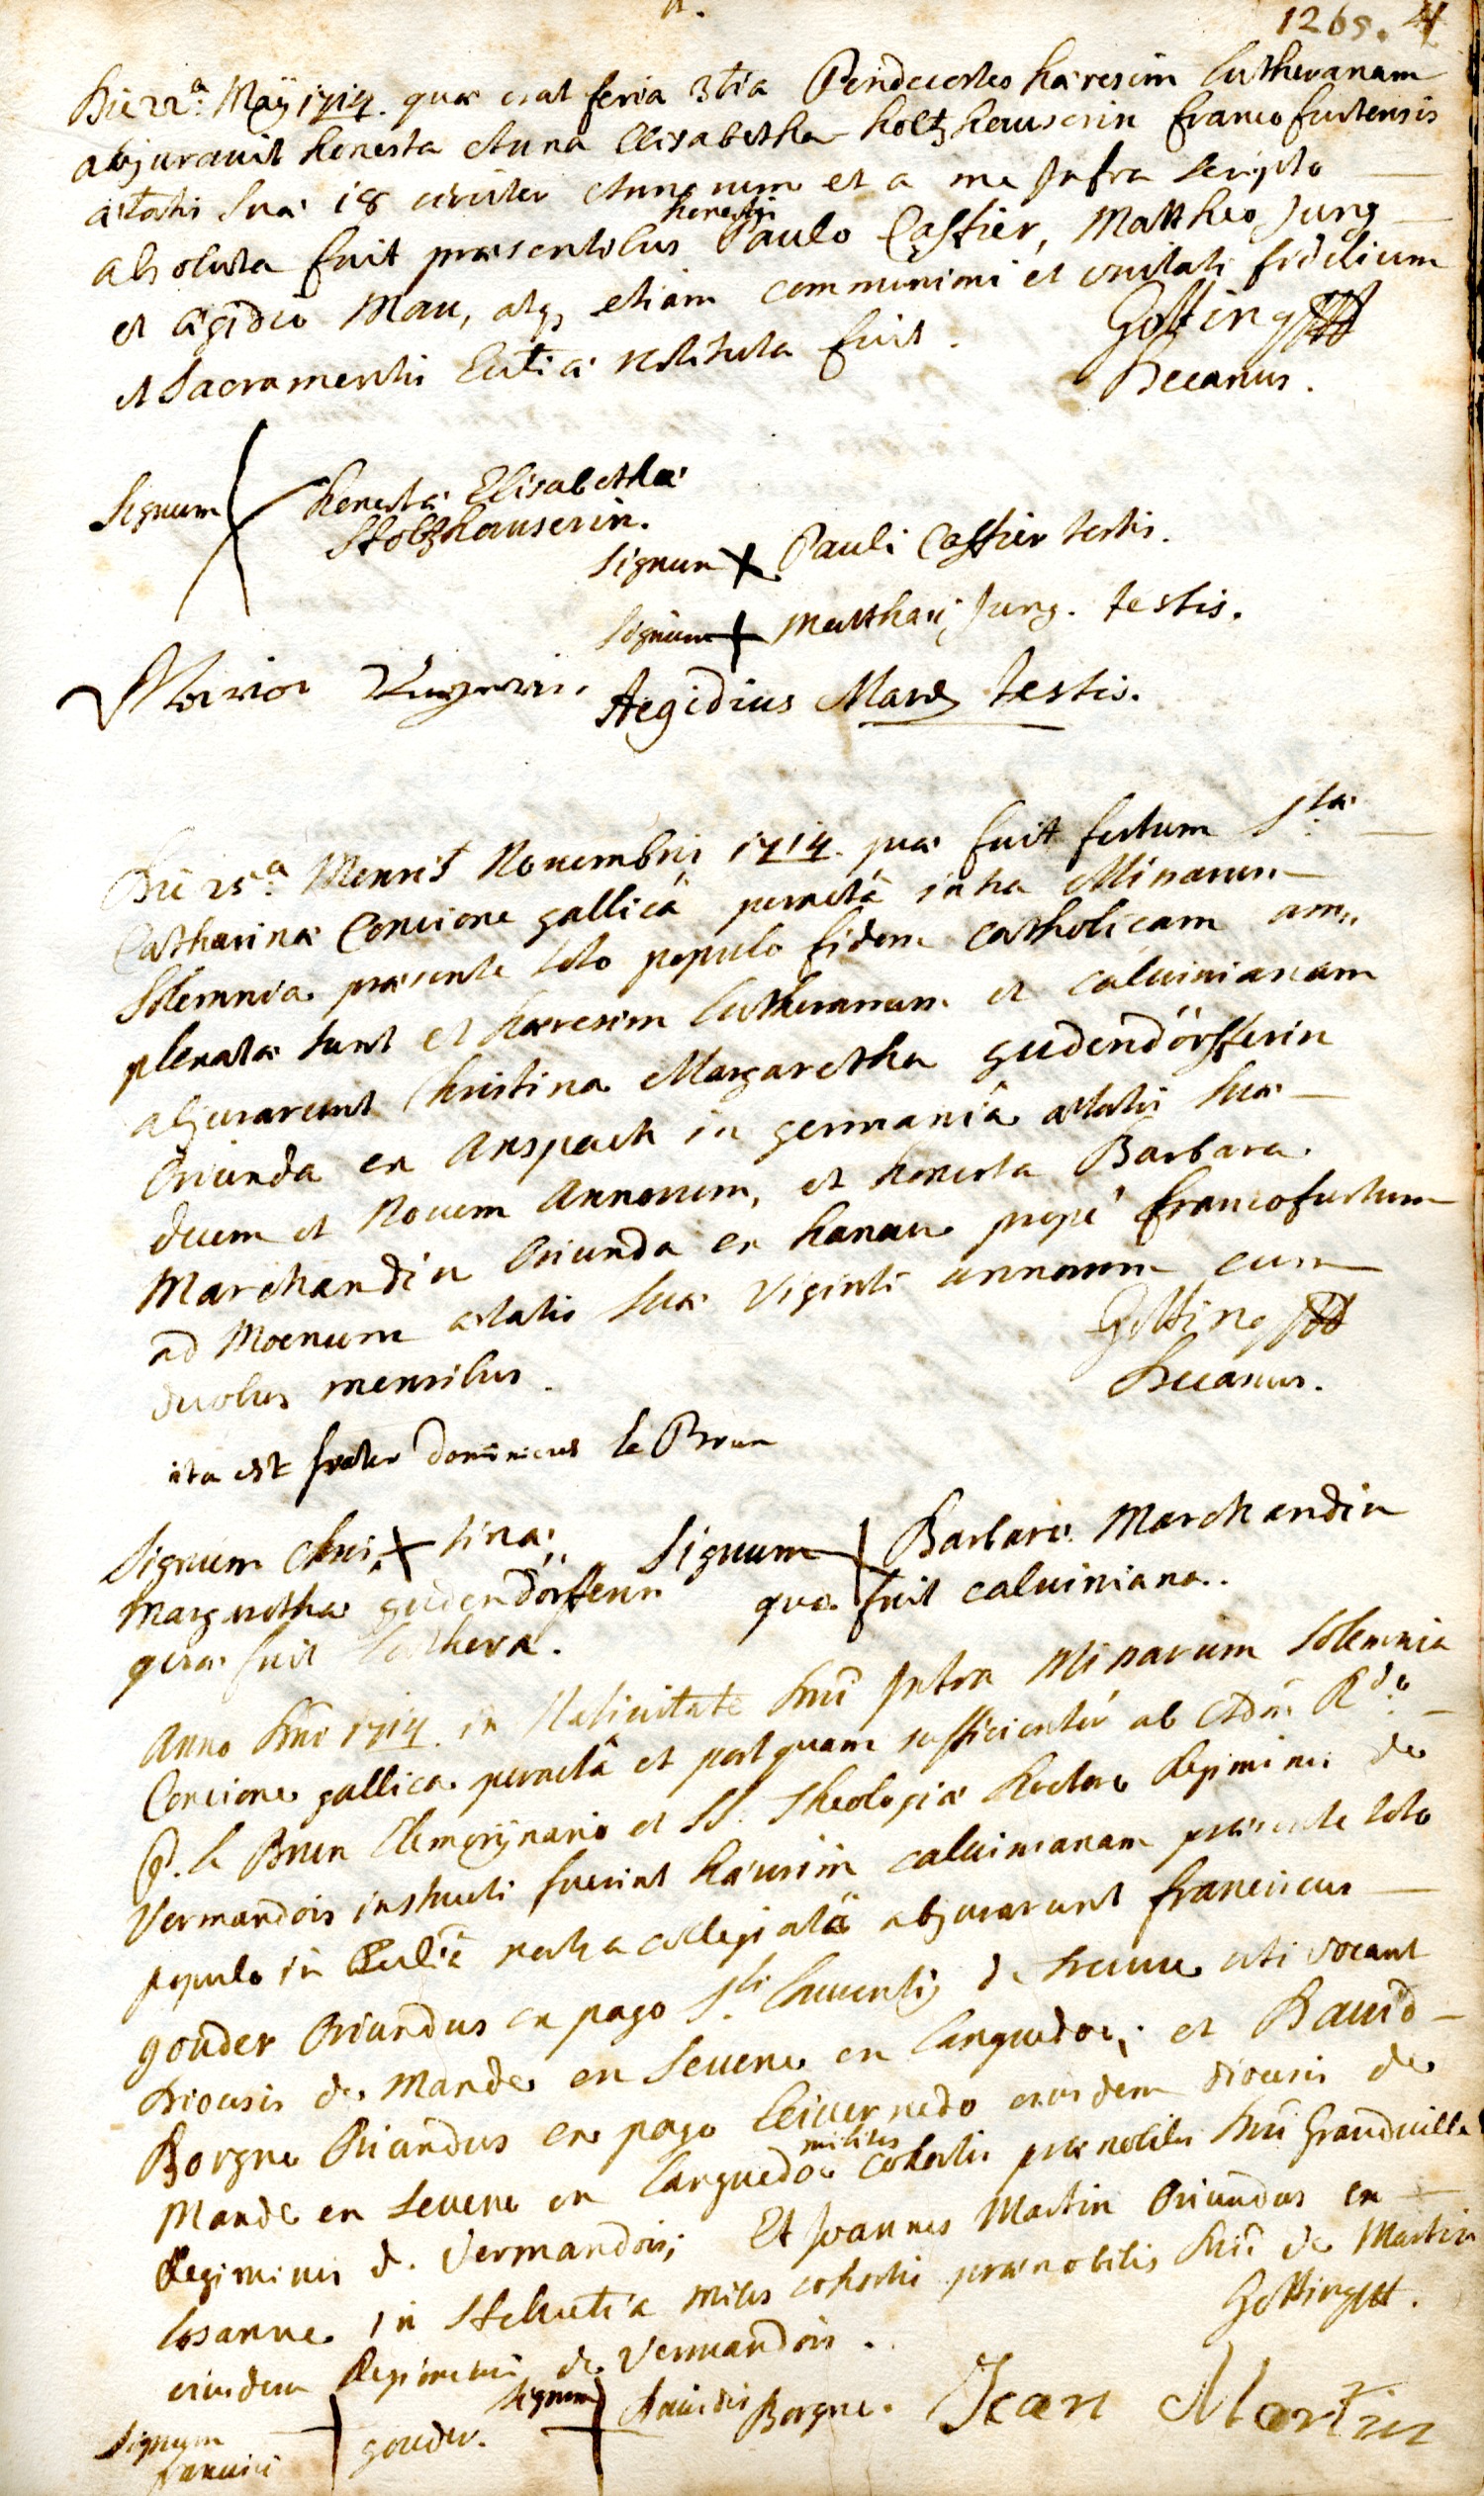 1265. 4
Die 22a. Maÿ 1714. quæ erat feria 3tia Pendecostes hæresim lutheranam
abjuravit honesta Anna Elisabetha holtzhauserin francofurtensis
ætatis suæ 18 circiter Annorum et a me Infra scripto
absoluta fuit præsentibus honestis Paulo Caffier, Mattheo Jung
et ægidio Mau, atq, etiam communioni et unitati fidelium
et Sacramentis Ecctiæ restituta fuit.
Gotting
Decanus.
Signum honestæ Elisabethæ
Holtzhauserin.
Signum X Pauli Caffier testis.
Signum + Matthæi Jung. testis.
Maria
Aegidius Mau testis.
Die 25a. Mensis Novembris 1714. quæ fuit festum Stæ
Catharinæ Concione gallicâ peractâ intra Missarum
Solemnia præsente toto populo fidem catholicam am,,
plexatæ sunt et hæresim lutheranam et calvinianam
abjurarunt Christina Margaretha gudendörfferin
Oriunda ex Anspach in germaniâ ætatis suæ
decem et Novem Annorum, et honesta Barbara
Marchandin Oriunda ex hanau propè francofurtum
ad Moenum ætatis suæ Viginti annorum cum
duobus mensibus.
Gotting
Decanus.
ita est frater Dominicus le Brun
Signum Chris + tinæ
Margarethæ gudendörfferin
quæ fuit Luthera.
Signum Barbaræ Marchandin
quæ fuit calviniana.
Anno Dni 1714. in Nativitate Dni Intra Missarum Solemnia
Concione gallica peractâ et postquam sufficienter ab Adm Rdo.
P. le Brun Elemosynario et SS. Theologiæ Lectore Regiminis de
Vermandois instructi fuerint hæresim calvinianam præsente toto
populo in Ecclia nostra collegiatâ abjurarunt franciscus
gouder Oriundus ex pago Sti de uti vocant
Diocesis de Mande en Sevene en Languedoc; et David
Borgne Oriundus ex pago eiusdem diocesis de
Mande en Sevene en Languedoc milites cohortis prænobilis Dni Grandville
Regiminis de Vermandois; Et Joannes Martin Oriundus ex
Losanne in Helvetiâ miles cohortis prænobilis Dni de Martin
eiusdem Regiminis de Vermandois.
Gotting
Signum francisci gouder.
Signum Davidis Borgne.
Jean Martin